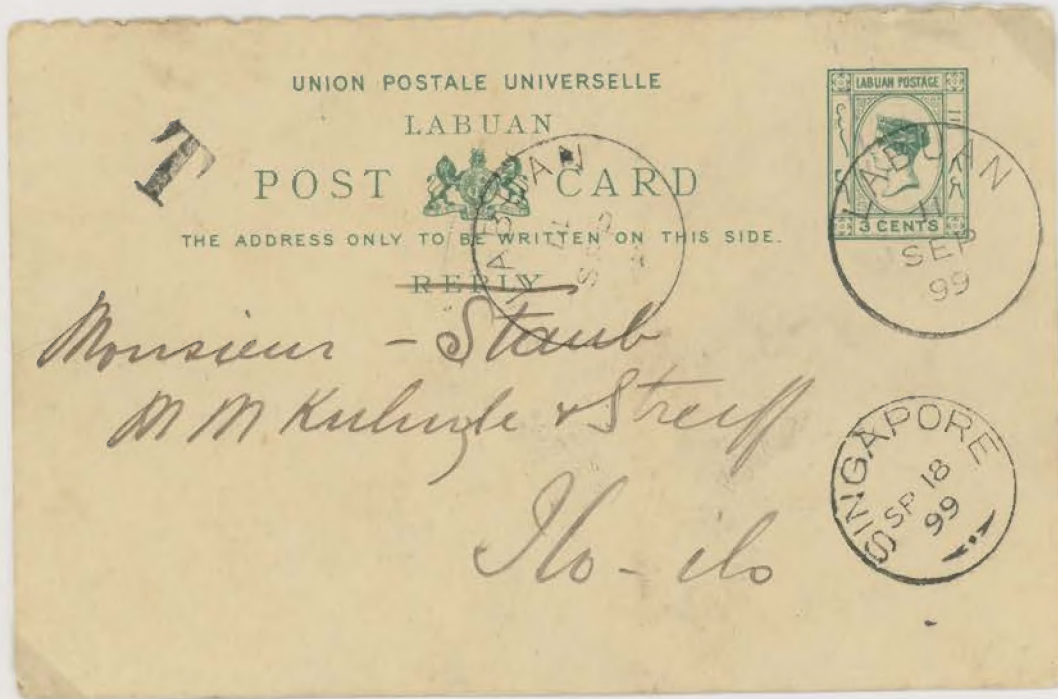 UNION POSTALE UNIVERSELLE
LABUAN
POST CARD
THE ADDRESS ONLY TO BE WRITTEN ON THIS SIDE.
REPLY
LABUAN POSTAGE
3 CENTS
T
LABUAN
SEP
LABUAN
11
SEP
99
Monsieur - Staub
M M & Streiff
Ilo-ilo
SINGAPORE
SP 18
99